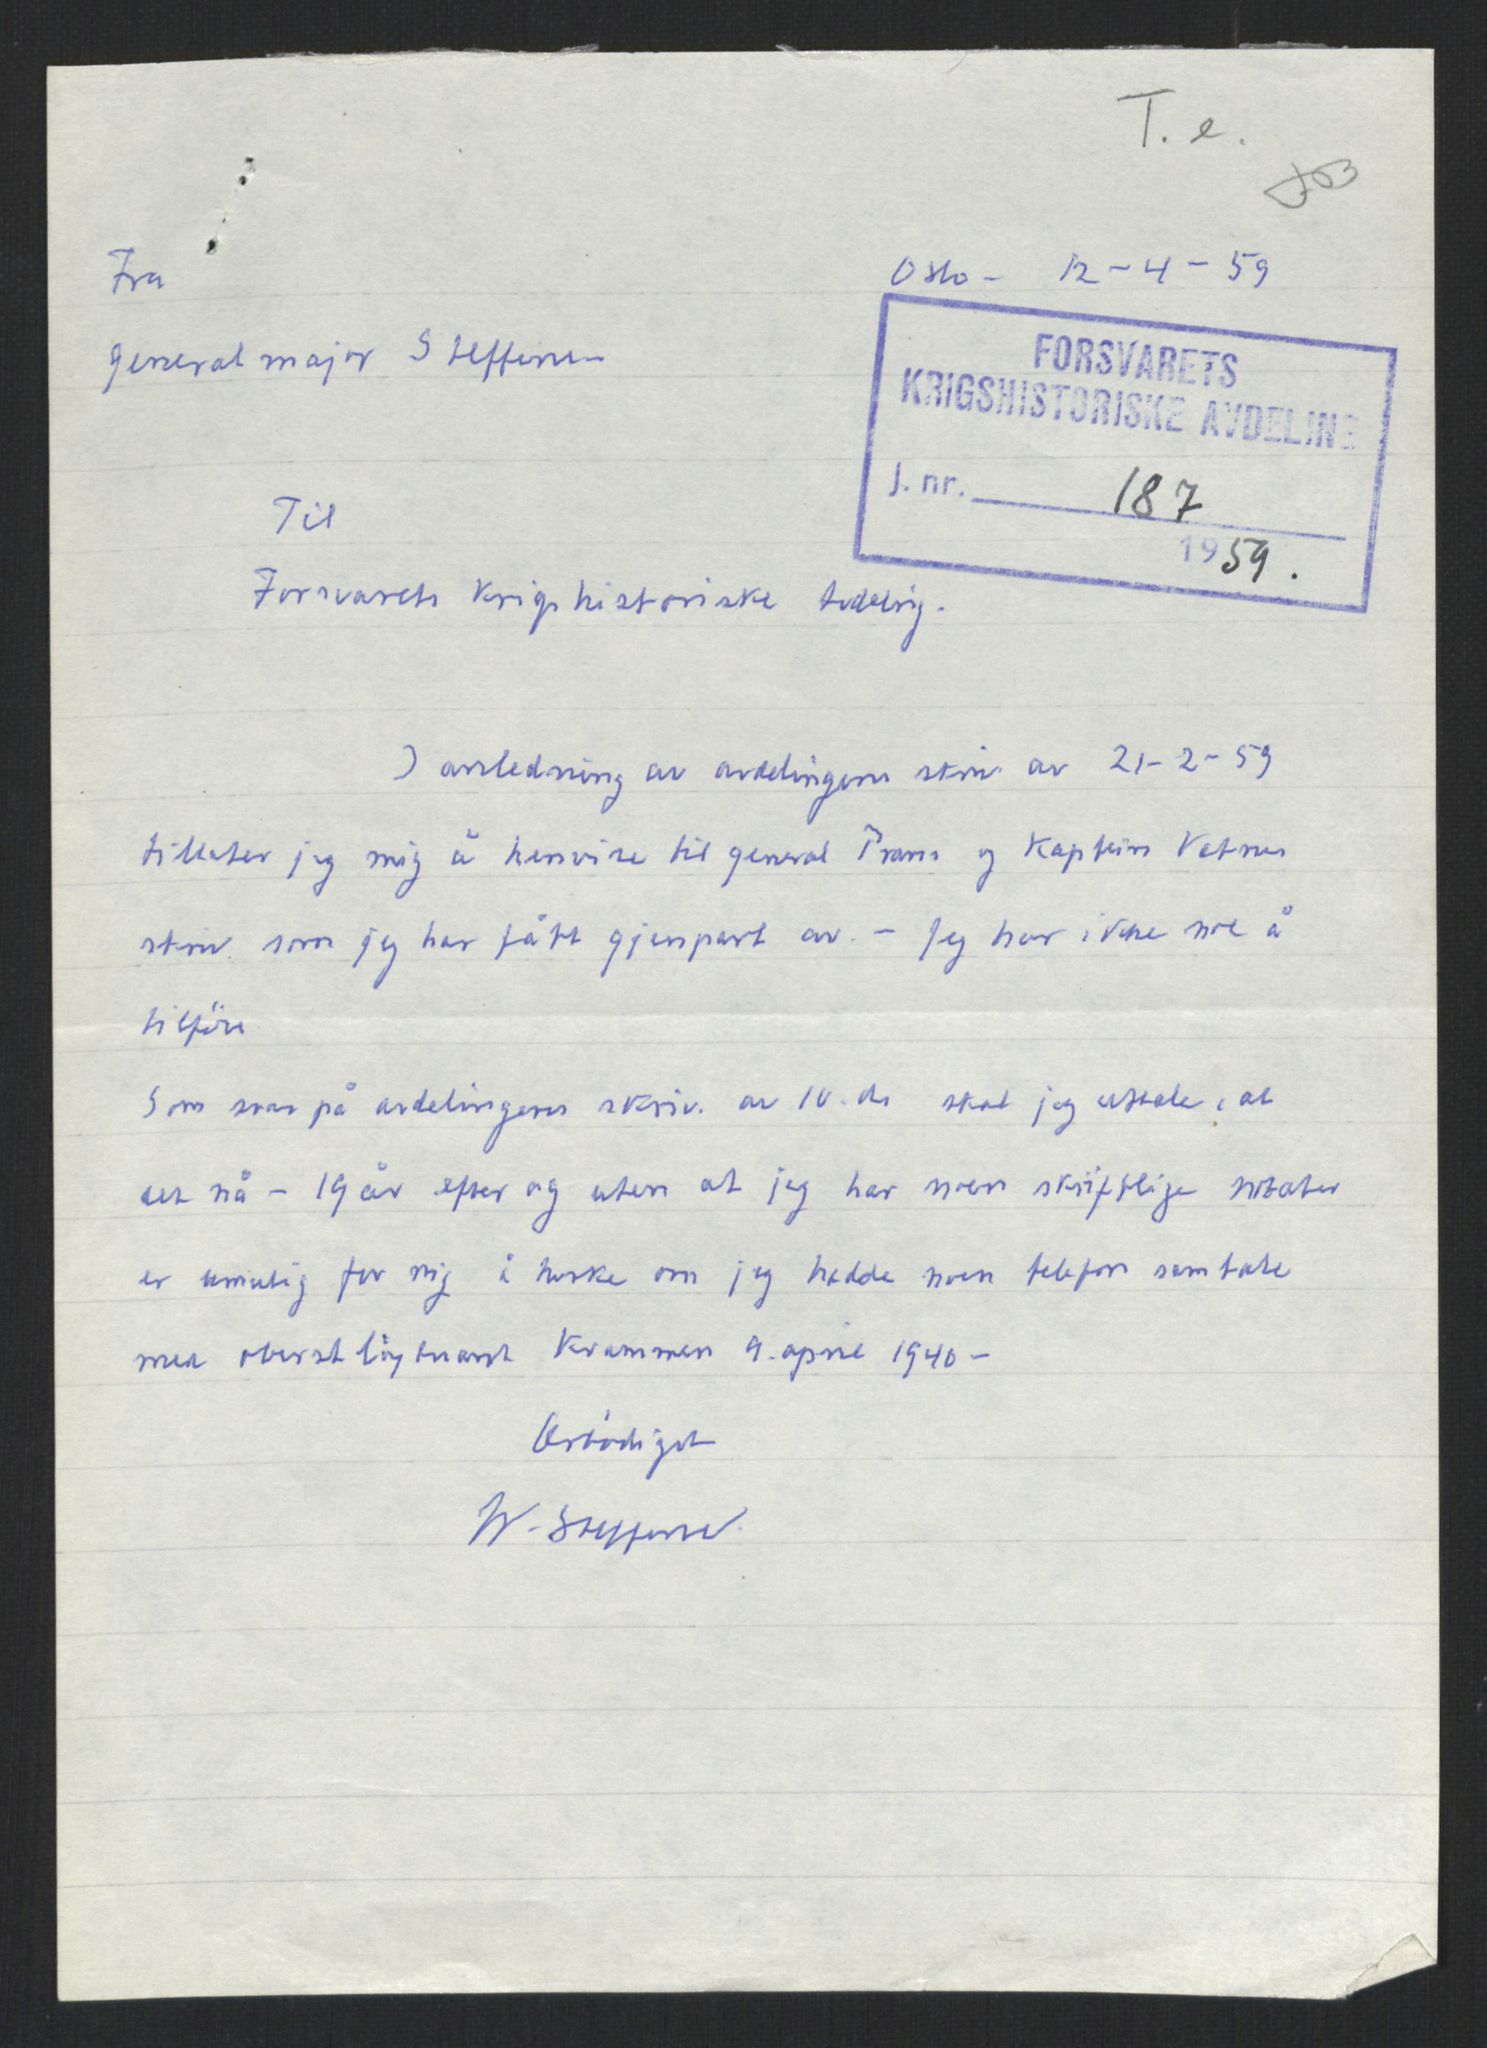 T. e.
Fra
Oslo - 12-4-59
generalmajor Steffens
FORSVARETS
KRIGSHISTORISKE AVDELING
J. nr. 187
1959.
Til
Forsvarets krigshistoriske Avdeling.
I anledning av avdelingens skriv. av 21-2-59
tillater jeg mig å henvise til general Prams og Kaptein Vatnes
skriv. som jeg har fått gjenpart av. - Jeg har ikke noe å
tilföie
Som svar på avdelingens skriv. av 10. ds skal jeg uttale, at
det nå - 19 år efter og uten at jeg har noen skriftlige notater
er umulig for mig å huske om jeg hadde noen telefon samtale
med oberstlöytnant Krammen 9. april 1940 -
Ærbödigst
W. Steffens